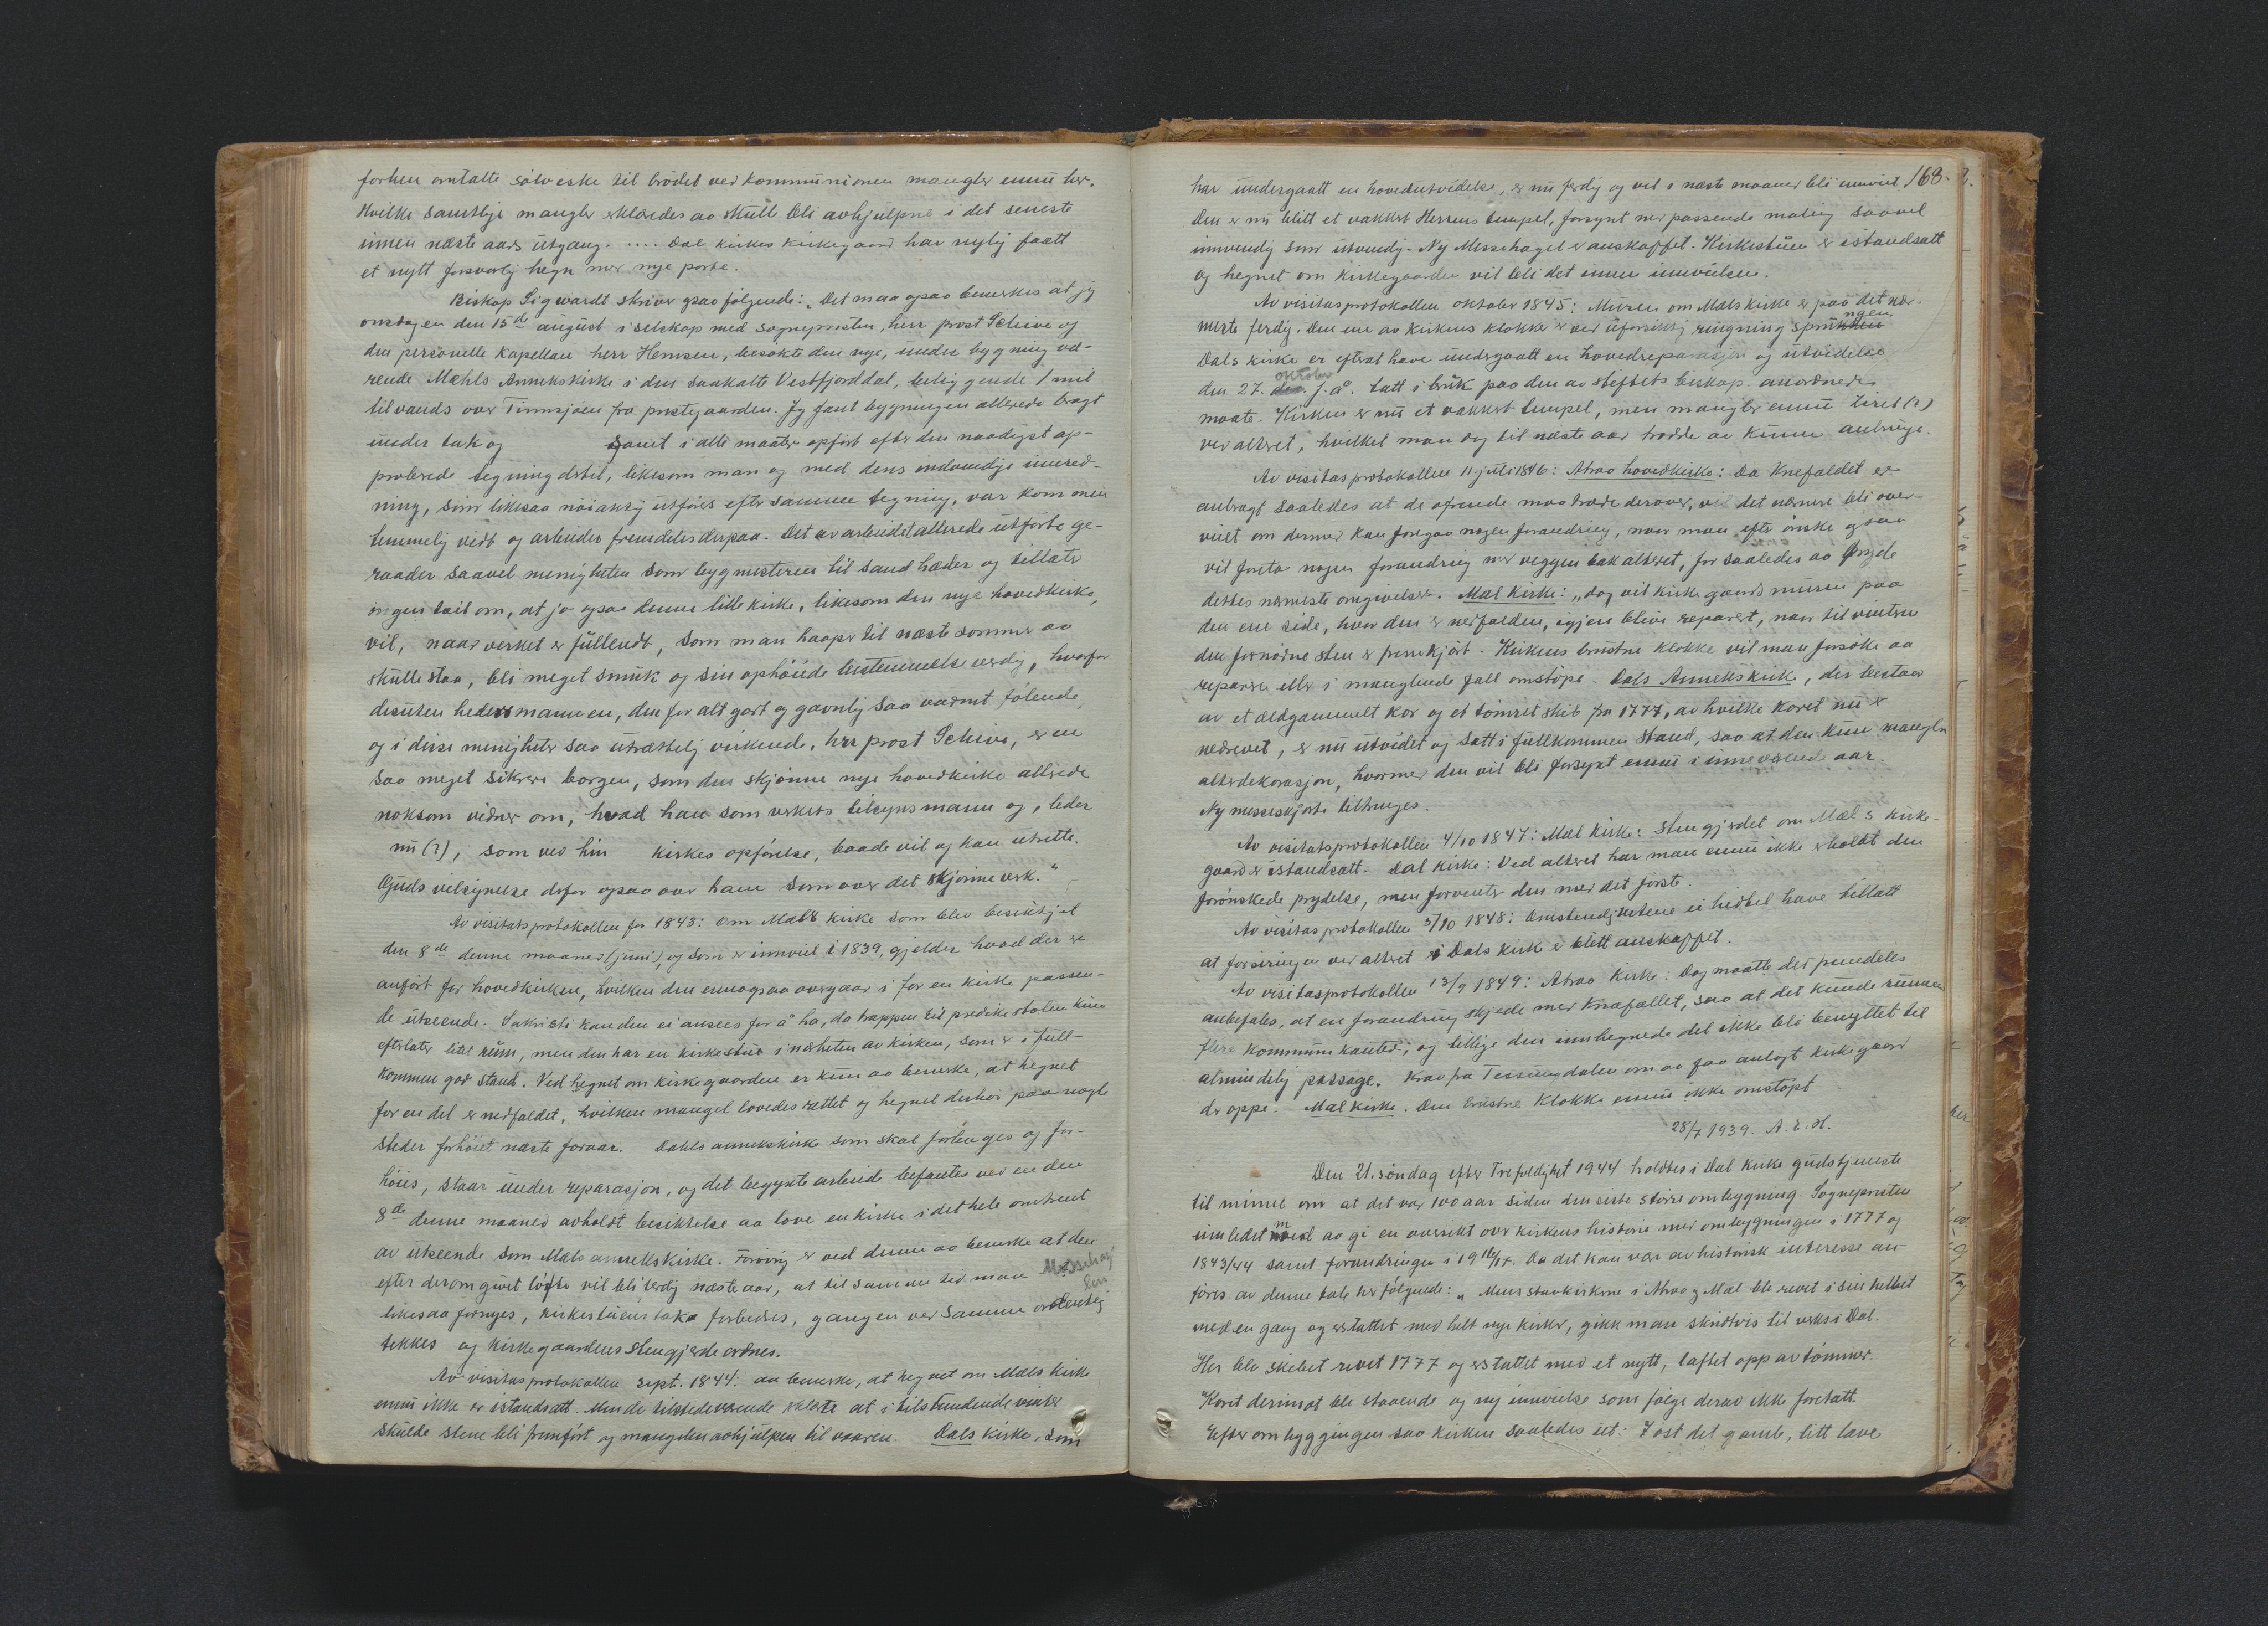 forhen omtalte sølveske til brødet ved kommunionen mangler ennu her.
Hvilke samtlige mangler erklærdes at skull bli avhjulpne i det seneste
innen næste aars utgang. .... Dal kirkes kirkegaard har nylig faatt
et nytt forsvarlig hegn mer nye porte.
Biskop Sigwardt skriver ogsaa følgende: „Det maa ogsaa bemerkes at jeg
onsdagen den 15de august i selskap med sognepresten, herr prost Schive og
den personelle kapellan herr Hemsen, besøkte den nye, under bygning væ-
rende Mæhls Annekskirke i den saakalte Vestfjorddal, beliggende 1 mil
til vands over Tinnsjøen fra prestegaarden. Jeg fant bygningen allerede bragt
under tak og samt i alle maater opført efter den naadigst ap-
proberede tegning dertil, likesom man og med dens indvendige innred-
ning, som likesaa nøiaktig utføres efter samme tegning, var kommen
temmelig vidt og arbeider fremdeles derpaa. Det av arbeidet allerede utførte ge-
raader saavel menigheten som bygmesteren til sand hæder og tillater
ingen tvil om, at jo ogsaa denne lille kirke, likesom den nye hovedkirke,
vil, naar verket er fullendt, som man haaper til næste sommer aa
skulle staa, bli meget smuk og sin ophøiede bestemmelse verdig, hvorfor
desuten hedersmannen, den for alt godt og gavnlig saa varmt følende,
og i disse menigheter saa utrættelig virkende, herr prost Schive, er en
saa meget sikrere borgen, som den skjønne nye hovedkirke allerede
noksom vidner om, hvad han som verkets tilsynsmann og leder
nu (?), som ved hin kirkes opførelse, baade vil og kan utrette.
Guds velsignelse derfor ogsaa over ham som over det skjønne verk."
Av visitatsprotokollen for 1843: Om Mæls kirke som blev besiktiget
den 8de denne maaned (juni), og som er innviet i 1839, gjelder hvad der er
anført for hovedkirken, hvilken den ennogsaa overgaar i for en kirke passen-
de utseende. Sakristi kan den ei ansees for å ha, da trappen til predikestolen kun
efterlater litet rum, men den har en kirkestue i nærheten av kirken, som er i full-
kommen god stand. Ved hegnet om kirkegaarden er kun aa bemerke, at hegnet
for en del er nedfaldet, hvilken mangel lovedes rettet og hegnet derhos paa nogle
steder forhøiet næste foraar. Dahls annekskirke som skal forlenges og for-
høies, staar under reparasjon, og det begynte arbeide befantes ved en den
8de denne maaned avholdt besiktelse aa love en kirke i det hele omtrent
av utseende som Mæls annekskirke. Forøvrig er ved denne aa bemerke at den
efter derom givet løfte vil bli ferdig næste aar, at til samme tid maa Messehage
len
likesaa fornyes, kirkestuens tak forbedres, gangen ver samme ordentlig
tekkes og kirkegaardens stengjerde ordnes.
Av visitasprotokollen sept. 1844: aa bemerke, at hegnet om Mæls kirke
ennu ikke er istandsatt. Men de tilstedeværende erklærte at i tilstundende vinter
skulde stene bli fremført og mangelen avhjulpen til vaaren. Dals kirke, som
168.
har undergaatt en hovedutvidelse, er nu ferdig og vil i næste maaned bli innviet.
Den er nu blitt et vakkert Herrens tempel, forsynt mer passende maling saavel
innvendig som utvendig. Ny Messehagel er anskaffet. Kirkestuen er istandsatt
og hegnet om kirkegaarden vil bli det innen innvielsen.
Av visitasprotokollen oktober 1845: Muren om Mæls kirke er paa det nær-
meste ferdig. Den ene av kirkens klokker er ved uforsiktig ringning sprukken
ngen
Dals kirke er efter at have undergaatt en hovedreparasjon og utvidelse
oktober
den 27. f.å. tatt i bruk paa den av stiftets biskop anordnede
maate. Kirken er nu et vakkert tempel, men mangler ennu ziret (?)
ver alteret, hvilket man dog til næste aar trodde aa kunne anbringe.
Av visitasprotokollen 11 juli 1846: Atraa hovedkirke: Da Knefaldet er
anbragt saaledes at de ofrende maa træde derover, vil det nærmere bli over-
veiet om dermed kan foregaa nogen forandring, naar man efter ønske ogsaa
vil foreta nogen forandring ver veggen bak alteret, for saaledes aa pryde
dettes nærmeste omgivelser. Mæl kirke: „dog vil kirkegaardsmuren paa
den ene side, hvor den er nedfalden, igjen blive reparert, naar til vinteren
den fornødne sten er fremkjørt. Kirkens brustne klokke vil man forsøke aa
reparere eller i manglende fall omstøpe. Dals Annekskirke, der bestaar
av et ældgammelt kor og et tømret skib fra 1777, av hvilke koret nu er
nedrevet, er nu utvidet og satt i fullkommen stand, saa at den kun mangler
alterdekorasjon, hvormed den vil bli forsynt ennu i inneværende aar.
Ny messeskjorte tiltrenges.
Av visitatsprotokollen 4/10 1847: Mæl kirke: Stengjerdet om Mæl s kirke-
gaard er istandsatt. Dal kirke: Ved alteret har man ennu ikke erholdt den
forønskede prydelse, men forventer den med det første.
Av visitasprotokollen 3/10 1848: Omstendighetene ei hidtil have tillatt
at forsiringen ver alteret i Dals kirke er blitt anskaffet.
Av visitasprotokollen 13/9 1849: Atraa kirke: Dog maatte det fremdeles
anbefales, at en forandring skjede mer knæfallet, saa at det kunde rumme
flere kommunikanter, og tillige den innhegnede del ikke bli benyttet til
almindelig passage. Krav fra Tessungdalen om aa faa anlagt kirkegaard
der oppe. Mæl kirke. Den brustne klokke ennu ikke omstøpt
28/7 1939. A. E. H.
Den 21. søndag efter Trefoldighet 1944 holdtes i Dal kirke gudstjeneste
til minne om at det var 100 aar siden den siste større ombygning. Sognepresten
innledet med aa gi en oversikt over kirkens historie med ombygningen i 1777 og
1843/44 samt forandringen i 1916/17. Da det kan være av historisk interesse an-
føres av denne tale her følgende: „Mens stavkirkene i Atraa og Mæl ble revet i sin helhet
med en gang og erstattet med helt nye kirker, gikk man skrittvis til verks i Dal.
Her ble skibet revet 1777 og erstattet med et nytt, laftet opp av tømmer.
Koret derimot ble staaende og ny innvielse som følge derav ikke foretatt.
Efter ombyggingen saa kirken saaledes ut: I øst det gamle, litt lave